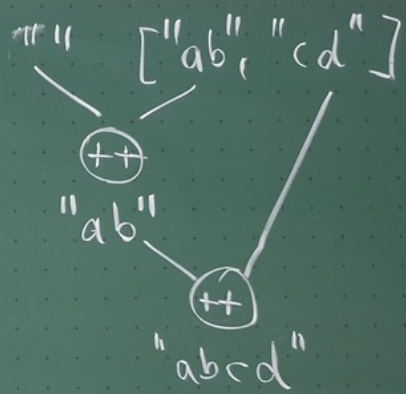 "" ["ab", "cd"]
++
"ab"
++
"abcd"